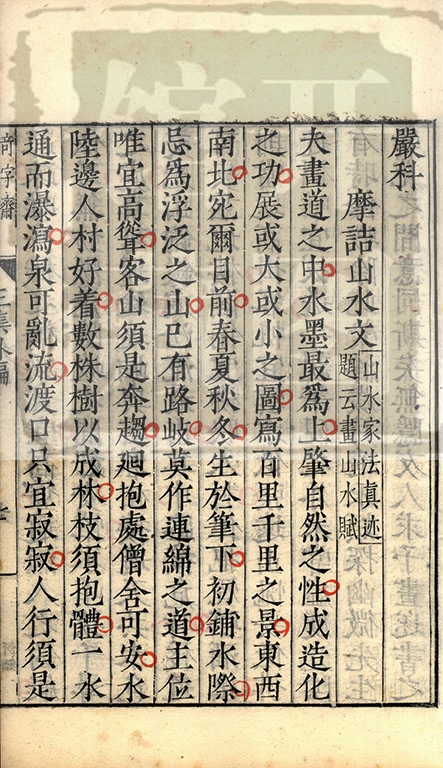 嚴科
摩詰山水文
山水家法真迹
題云畫山水賦
夫畫道之中水墨最爲上肇自然之性成造化
之功展或大或小之圖寫百里千里之景東西
南北宛爾目前春夏秋冬生於筆下初鋪水際
忌爲浮泛之山巳有路岐莫作連綿之道主位
唯宜高聳客山須是奔趨廻抱處僧舍可安水
陸邊人村好着數株樹以成林枝須抱體一水
通而瀑瀉泉可亂流渡口只宜寂寂人行須是